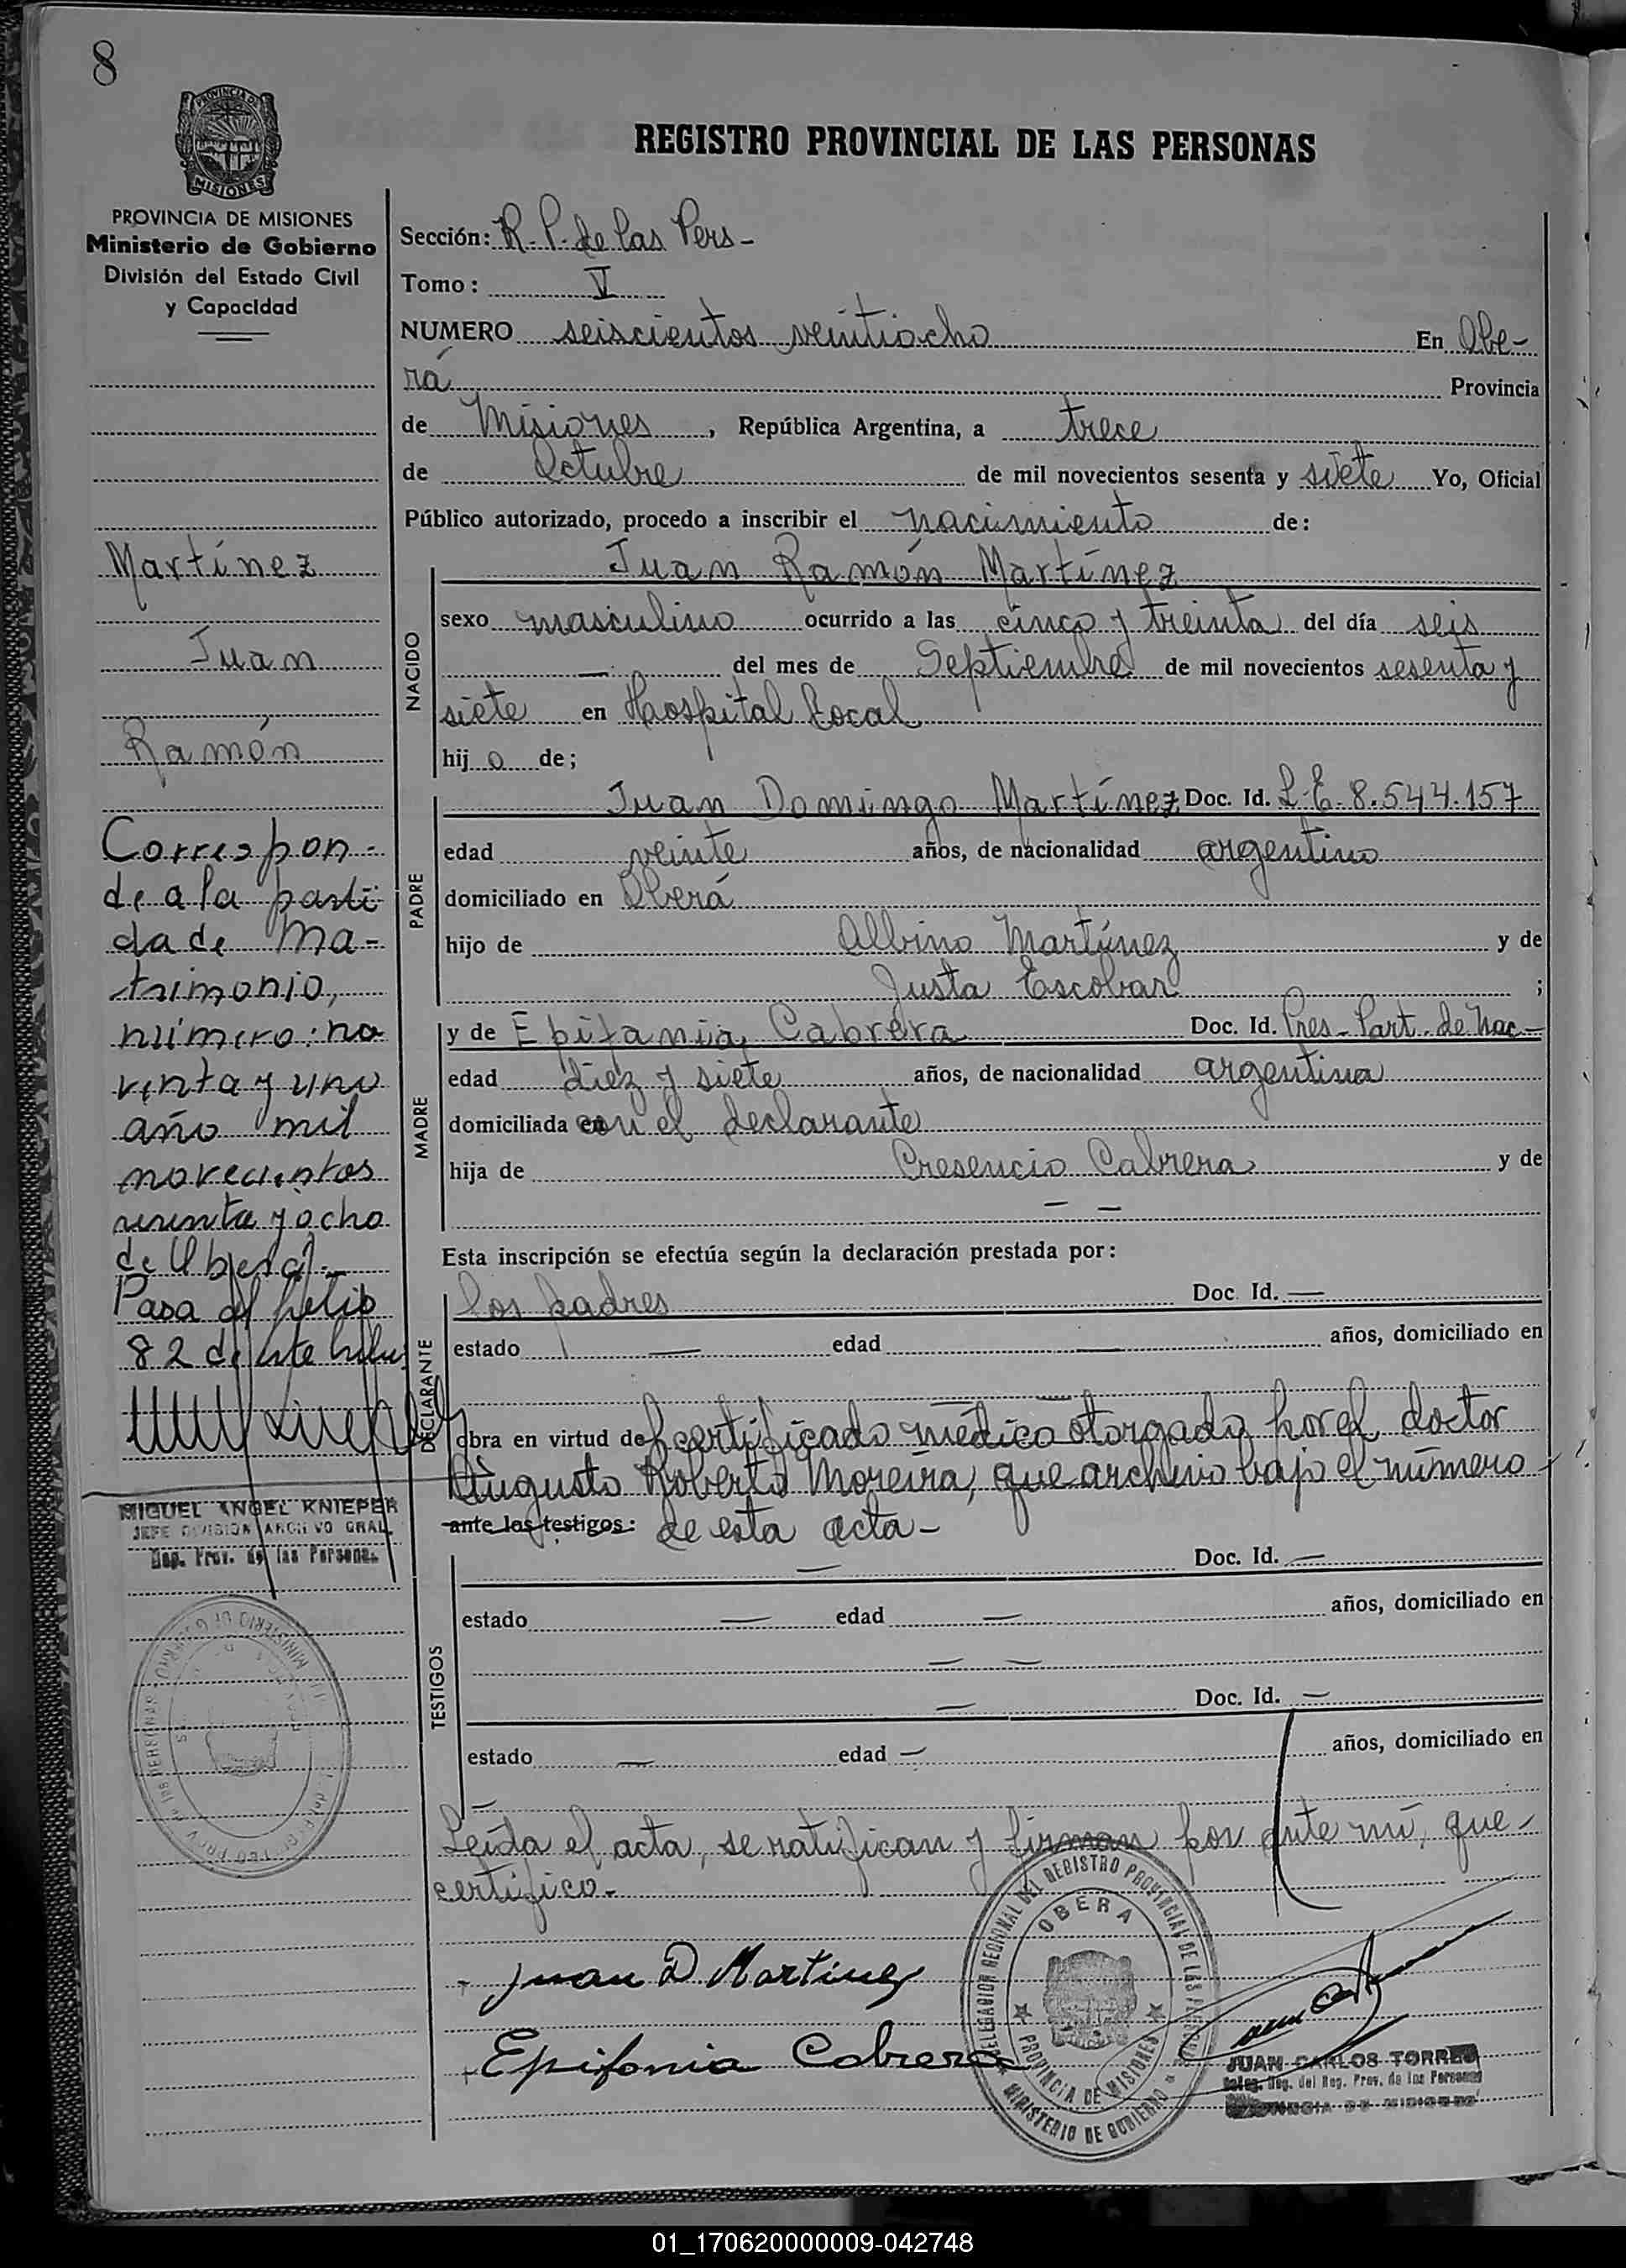 8
PROVINCIA DE MISIONES
REGISTRO PROVINCIAL DE LAS PERSONAS
PROVINCIA DE MISIONES
Ministerio de Gobierno
División del Estado Civil
y Capacidad
Sección: R. P. de las Pers -
Tomo: V
NUMERO seiscientos veintiocho En Obe-
rá Provincia
de Misiones, República Argentina, a trece
de Octubre de mil novecientos sesenta y siete Yo, Oficial
Público autorizado, procedo a inscribir el nacimiento de:
Juan Ramón Martínez
NACIDO
sexo masculino ocurrido a las cinco y treinta del día seis
— del mes de Septiembre de mil novecientos sesenta y
siete en Hospital local
hij o de;
Juan Domingo Martínez Doc. Id. L.E. 8.544.157
PADRE
edad veinte años, de nacionalidad argentino
domiciliado en Oberá
hijo de Albino Martínez y de
Justa Escobar ;
y de Epifania Cabrera Doc. Id. Pres. Part. de Nac-
MADRE
edad diez y siete años, de nacionalidad argentina
domiciliada en con el declarante
hija de Cresencio Cabrera y de
— —
Esta inscripción se efectúa según la declaración prestada por:
los padres Doc. Id. —
DECLARANTE
estado — edad — años, domiciliado en
—
obra en virtud de certificado médico otorgado por el doctor
Augusto Roberto Moreira, que archivo bajo el número
ante los testigos: de esta acta -
— Doc. Id. —
TESTIGOS
estado — edad — años, domiciliado en
— —
— Doc. Id. —
estado — edad — años, domiciliado en
—
Leída el acta, se ratifican y firman por ante mí, que
certifico.-
Juan D Martinez
Epifania Cabrera
DELEGACION REGIONAL DEL REGISTRO PROVINCIAL DE LAS PERSONAS
OBERA
PROVINCIA DE MISIONES
MINISTERIO DE GOBIERNO
JUAN CARLOS TORRES
Deleg. Reg. del Reg. Prov. de las Personas
PROVINCIA DE MISIONES
Martínez
Juan
Ramón
Correspon-
de a la parti-
da de Ma-
trimonio,
número: no
venta y uno
año mil
novecientos
sesenta y ocho
de Oberá.-
Pasa al folio
82 de este
MIGUEL ANGEL KNIEPER
JEFE DIVISION ARCHIVO GRAL.
Rep. Prov. de las Personas
01_170620000009-042748